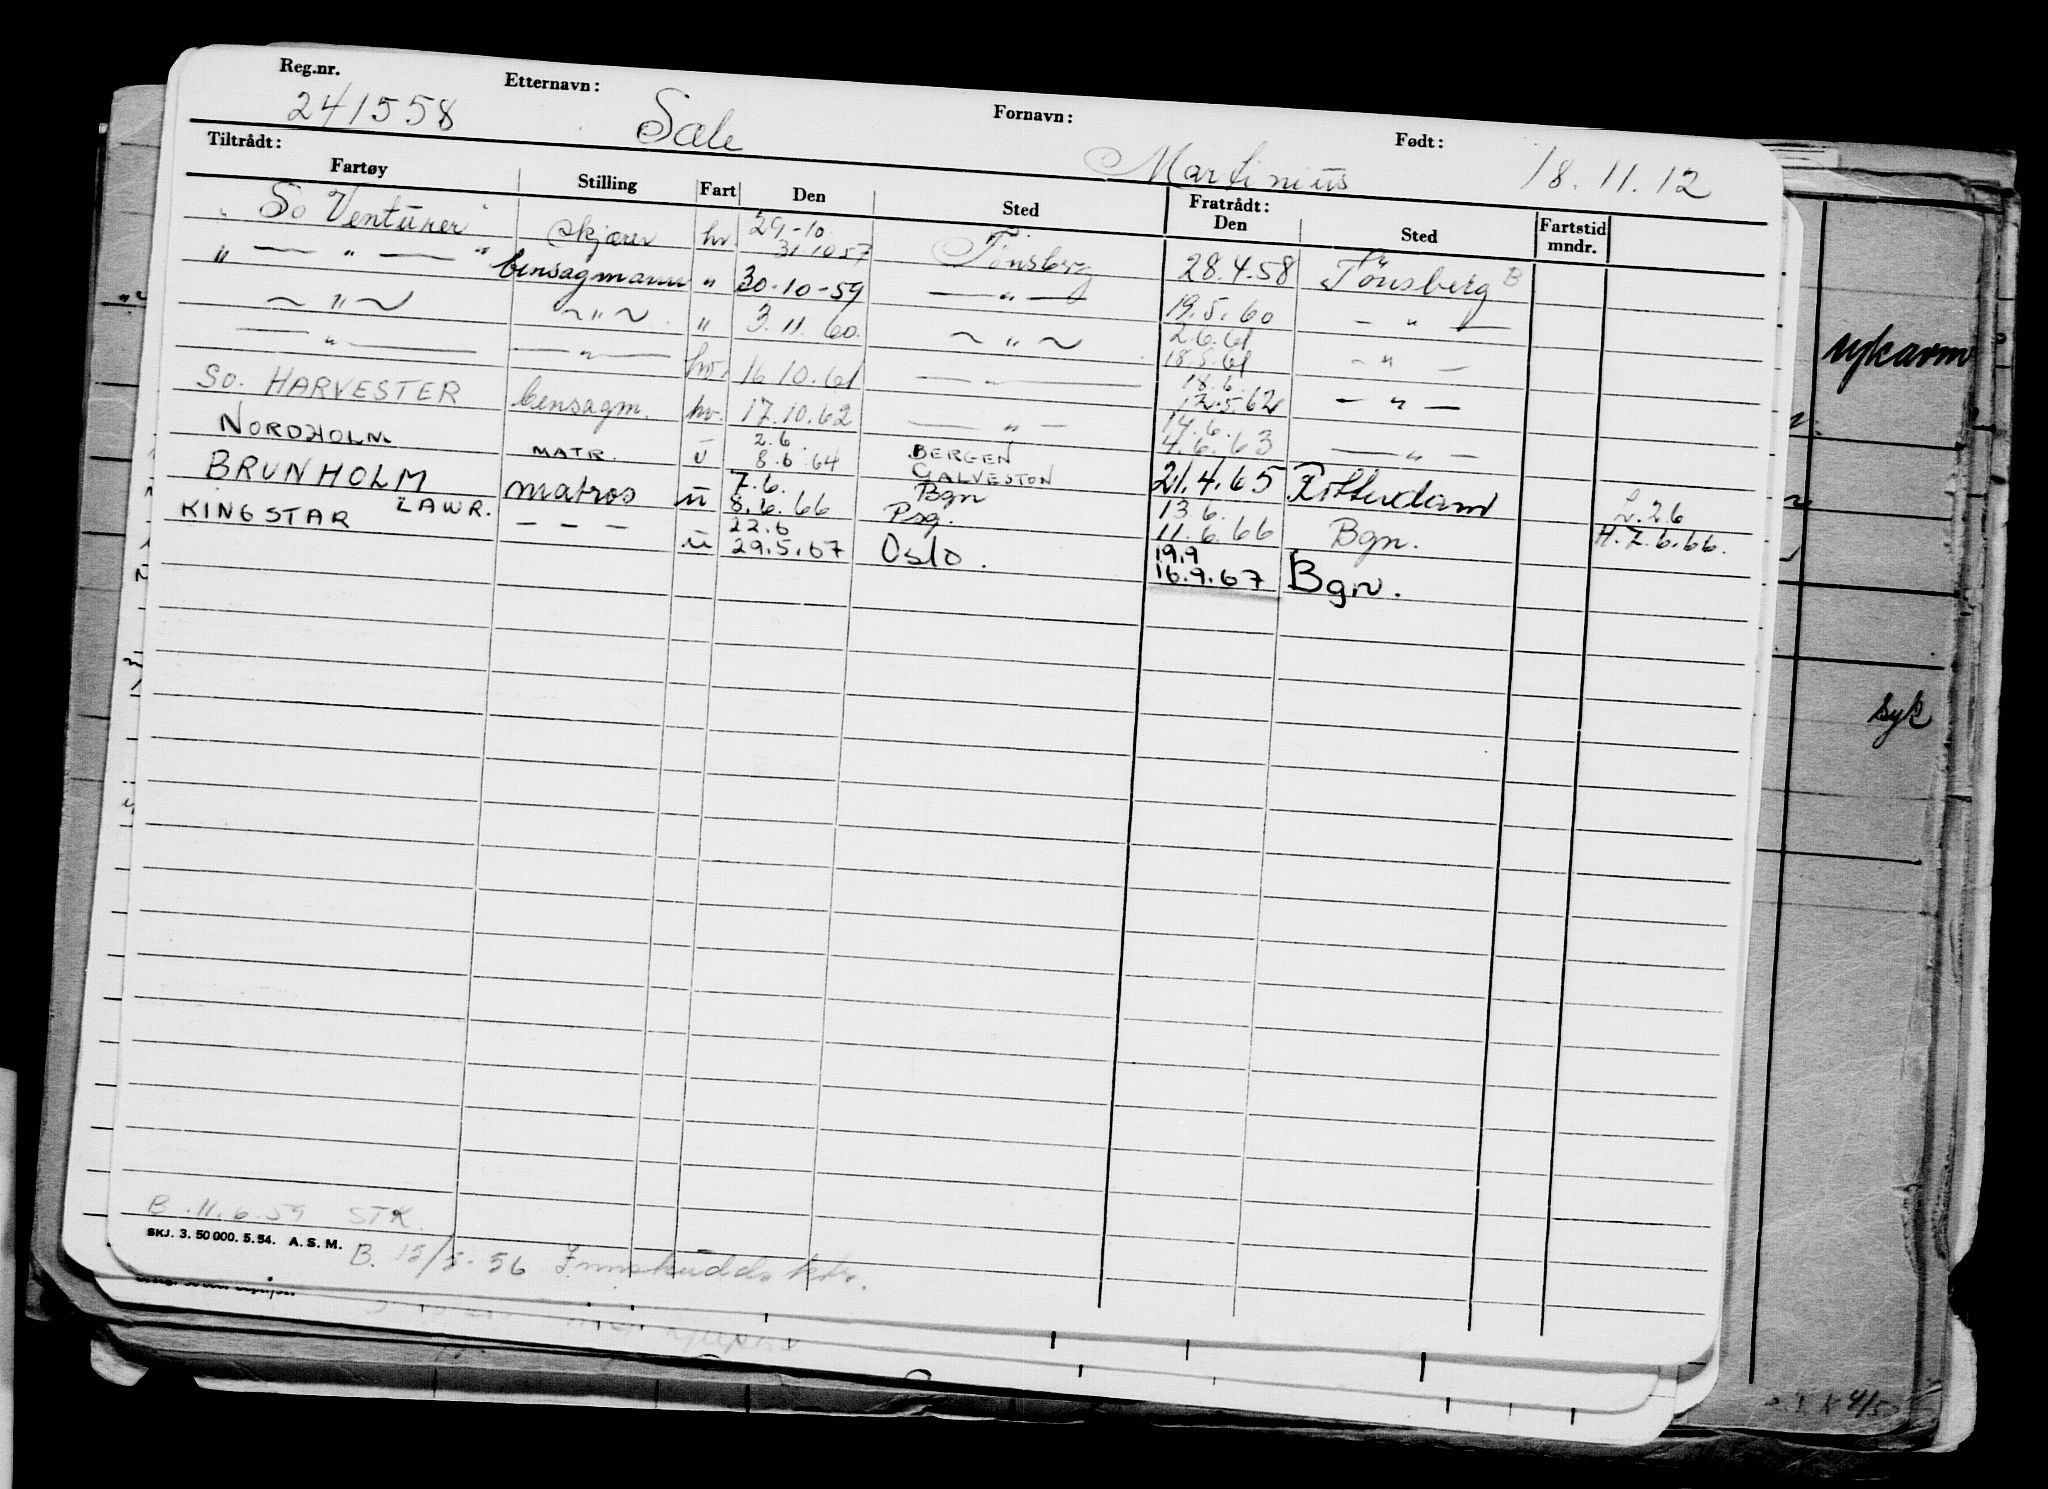 Reg.nr. Etternavn: Fornavn: Født:
241558 Sæle Martinius 18.11.12
Tiltrådt: Fratrådt:
Fartøy Stilling Fart Den Sted Den Sted Fartstid mndr.
"So Venturer" skjærer hv 29-10 31.10.57 Tønsberg 28.4.58 Tønsberg B
" — " — " bensagmann " 30-10-59 — " — 19.5.60 — " —
~ " ~ ~ " ~ " 3.11.60. ~ " ~ 2.6.61 18.5.61 — " —
— " — — " — hv. 16.10.61 — " — 18.6. 12.5.62 — " —
So. HARVESTER bensagm. hv. 17.10.62 — " — 14.6. 4.6.63 — " —
NORDHOLM MATR. U 2.6 8.6.64 BERGEN GALVESTON 21.4.65 Rotterdam
BRUNHOLM matros u 7.6. 8.6.66 Bgn Psg. 13.6. 11.6.66 Bgn. L.26 H.7.6.66.
KINGSTAR LAWR. — — — u 22.6 29.5.67 Oslo. 19.9 16.9.67 Bgn.
B. 11.6.59 STK.
SKJ. 3. 50 000. 5. 54. A. S. M.
B. 15/5-56 Innskudds ktr.
sykavm
syk